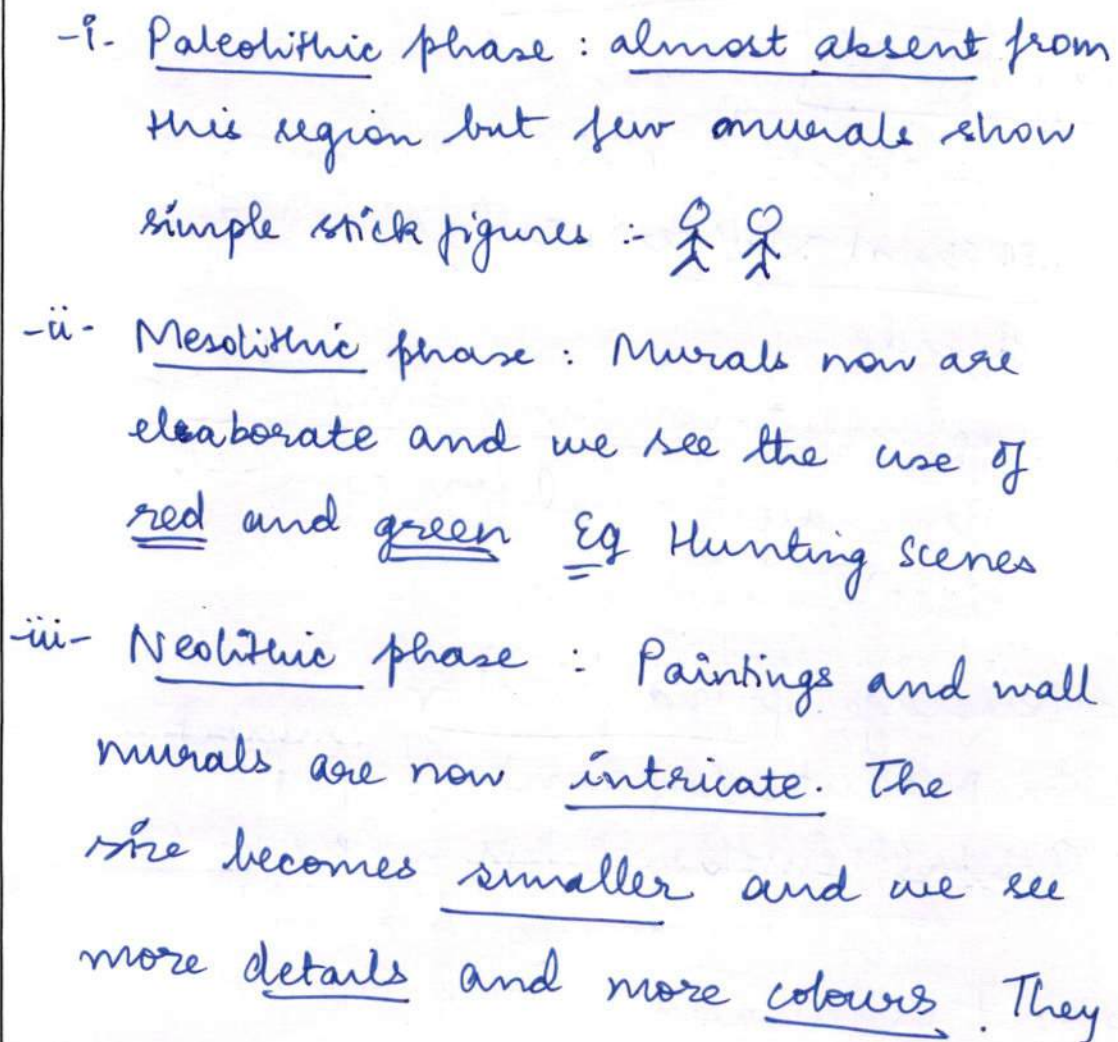 -i- Paleolithic phase : almost absent from
this region but few murals show
simple stick figures :-
-ii- Mesolithic phase : Murals now are
elaborate and we see the use of
red and green Eg Hunting scenes
-iii- Neolithic phase : Paintings and wall
murals are now intricate. The
size becomes smaller and we see
more details and more colours. They